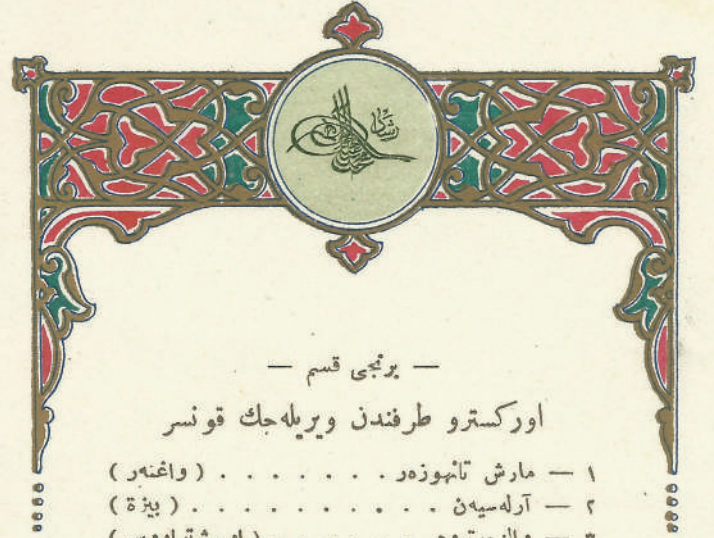 رشاد
— برنجی قسم —
اوركسترو طرفندن ويريله‌جك قونسر
١ — مارش تانهوزەر . . . . . . . ( واغنەر )
٢ — آرلەسيەن . . . . . . . . . . ( بيزة )
٣ —